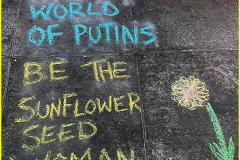 WORLD
OF PUTINS
BE THE
SUNFLOWER
SEED
WOMAN